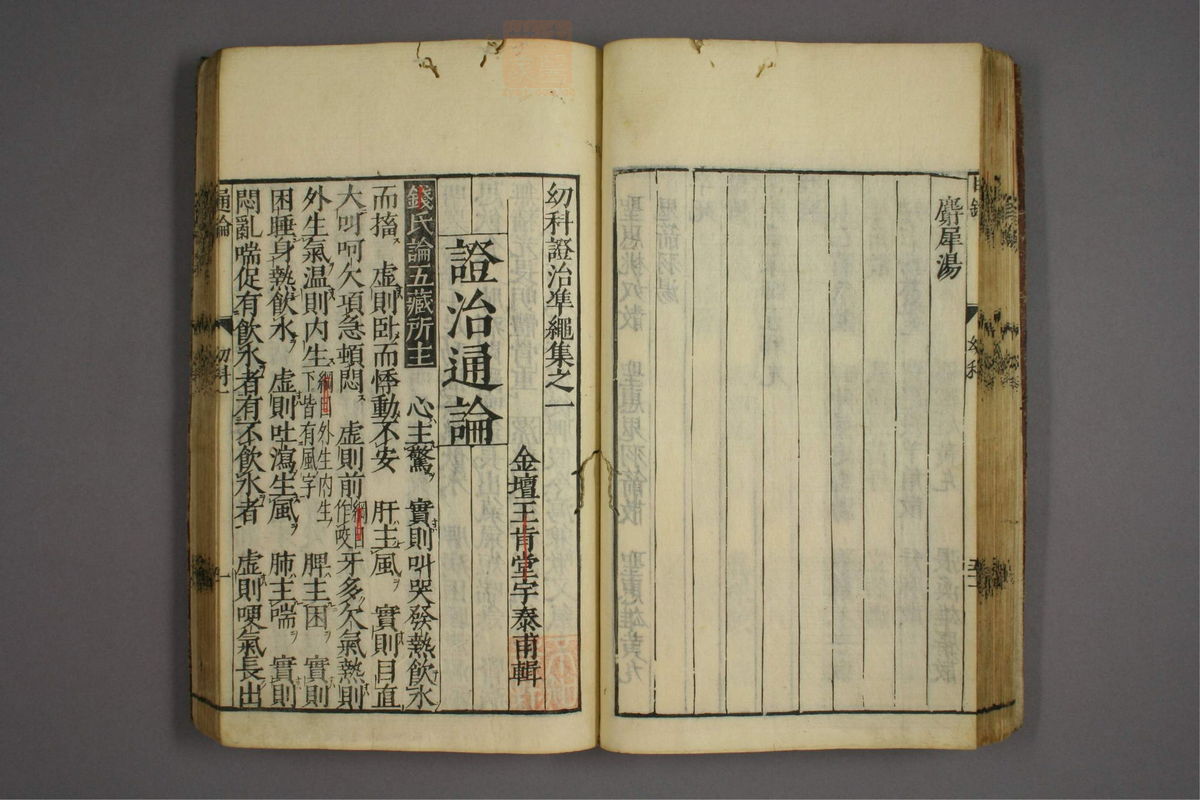 麝犀湯
目錄
幼科
五十二
幼科證治準繩集之一
金壇王肯堂宇泰甫輯
證治通論
錢氏論五藏所主　心主驚　實則叫哭發熱飲水
而搐　虛則臥而悸動不安　肝主風　實則目直
大叫呵欠項急頓悶　虛則前綱目作咬牙多欠氣熱則
外生氣温則内生綱目外生内生下皆有風字　脾主困　實則
困睡身熱飲水　虛則吐瀉生風　肺主喘　實則
悶亂喘促有飲水者有不飲水者　虛則哽氣長出
通論
幼科一
一